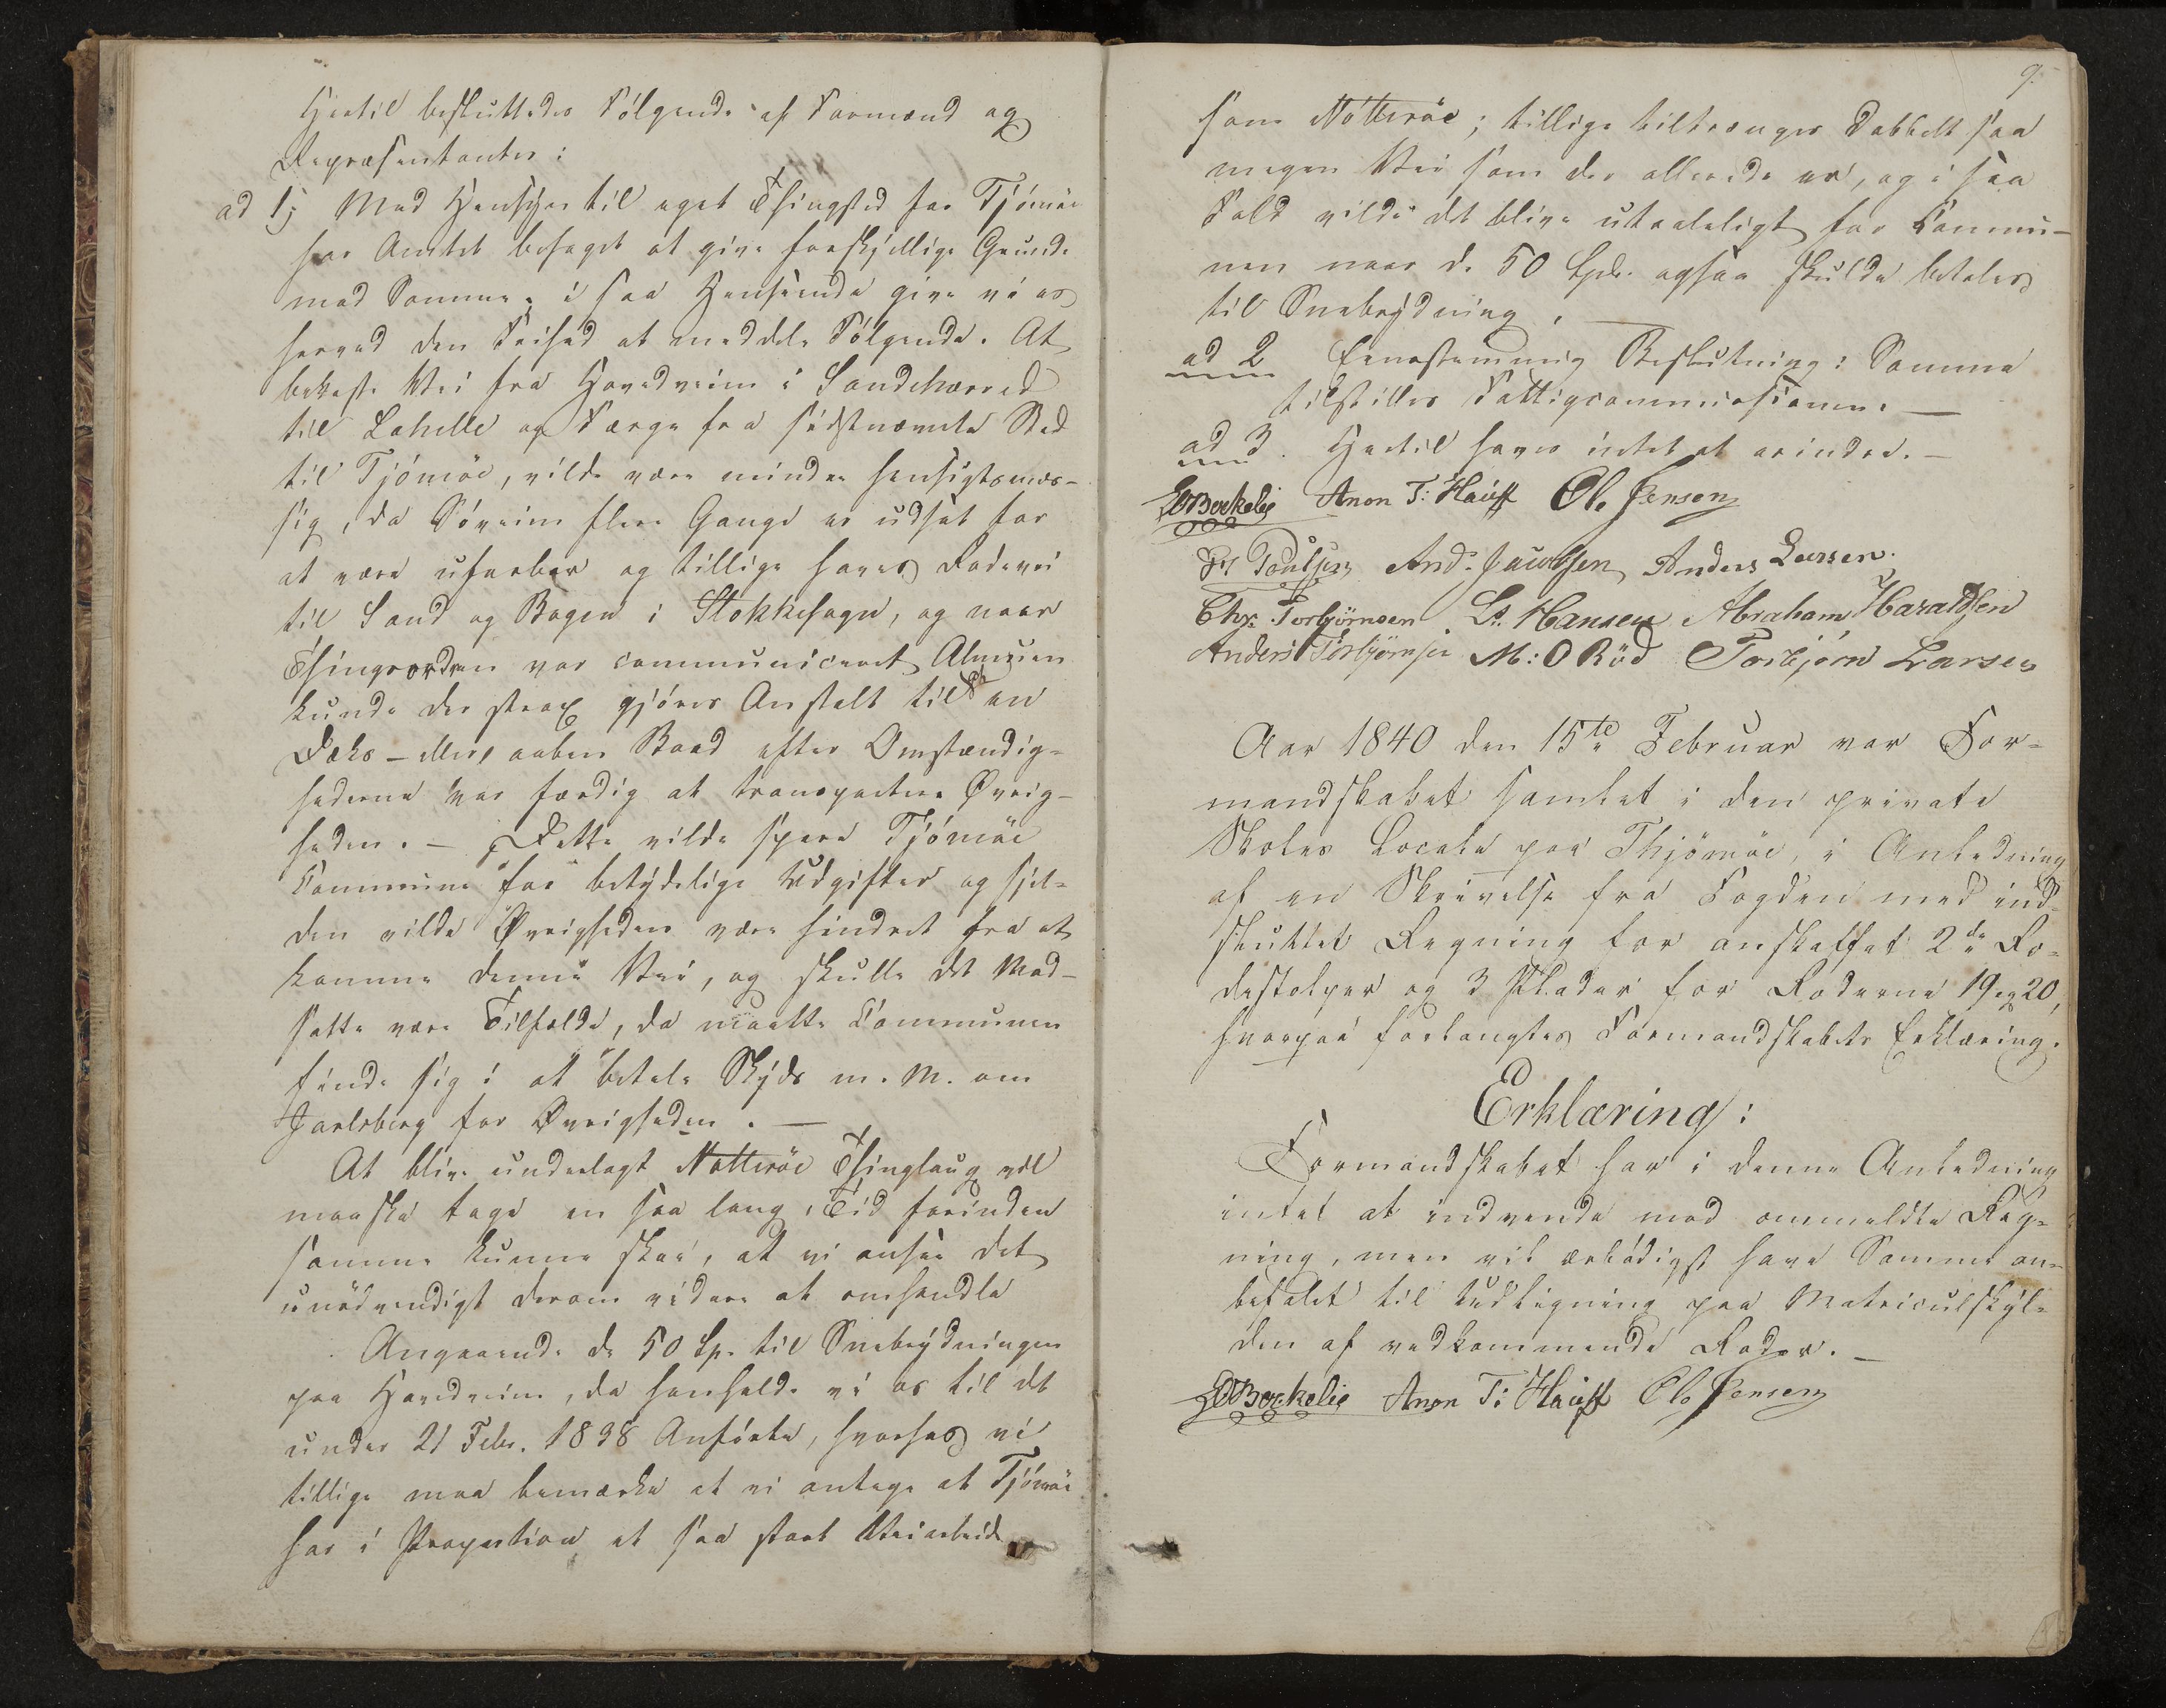 Hertil besluttedes Følgende af Formænd og
Repræsentanter:
ad 1; Med Hensyn til eget Thingsted for Tjömöe
har Amtet behaget at give forskjellige Grunde
mod Samme; i saa Henseende give vi os
herved den Frihed at meddele Følgende. At
bekoste Vei fra Hovedveien i Sandeherred
til Lahelle og Færge fra sidstnævnte Sted
til Tjömöe, vilde være mindre hensigtsmæs-
sig, da Söveien flere Gange er udsat for
at være ufarbar og tillige haves Rodevei
til Sand og Bogen i Stokkesogn, og naar
Thingsorden var communiceret Almuen
kunde der strax gjöres Anstalt til at en
Dæks- eller aaben Baad efter Omstændig-
hederne var færdig at transportere Øvrig-
heden. — Dette vilde spare Tjömöe
Commune for betydelige Udgifter og sjel-
den vilde Øvrigheden være hindret fra at
komme denne Vei, og skulle det Mod-
satte være Tilfælde, da maatte Communen
finde sig i at betale Skyds m. M. om
Jarlsberg for Øvrigheden. —
At blive underlagt Nötteröe Thinglaug vil
maaske tage en saa lang Tid forinden
samme kunne skee, at vi ansee det
unödvendigt derom videre at omhandle
Angaaende de 50 Sp. til Snebrydningen
paa Hovedveien, da henholde vi os til det
under 21 Febr. 1838 Anförte, hvorhos vi
tillige maa bemærke at vi antage at Tjömöe
har i Proportion et saa stort Veiarbeide
9.
som Nötteröe; tillige tiltrænges dobbelt saa
megen Vei som der allerede er, og i saa
Fald vilde det blive utaaleligt for Commu-
nen naar de 50 Spd. ogsaa skulde betales
til Snebrydning. —
ad 2 Eenstemmig Beslutning: Samme
tilstilles Fattigcommissionen. —
ad 3. Hertil haves intet at erindre. —
Anon T: Hauff Ole Jensen
And. Jacobsen Anders Larsen.
Chr. Torbjörnsen L. Hansen Abraham Haraldsen
Anders Torbjörnsen M: O Röd Torbjörn Larsen
Aar 1840 den 15te Februar var For-
mandskabet samlet i den private
Skoles Locale paa Thjömöe, i Anledning
af en Skrivelse fra Fogden med ind-
sluttet Regning for anskaffet 2de Ro-
destolper og 3 Plader for Roderne 19 og 20,
hvorpaa forlangtes Formandskabets Erklæring.
Erklæring:
Formandskabet har i denne Anledning
intet at indvende mod ommeldte Reg-
ning, men vil ærbödigst have Samme an-
befalet til Udligning paa Matriculskyl-
den af vedkommende Roder. —
Anon T: Hauff Ole Jensen